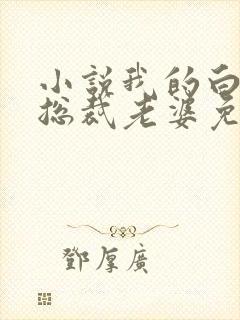 小説我的白
総裁老婆免
鄧厚廣